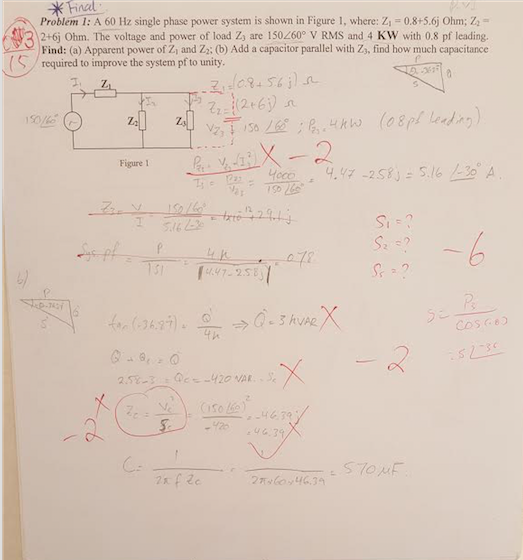 * Final
Problem 1: A 60 Hz single phase power system is shown in Figure 1, where: Z₁ = 0.8+5.6j Ohm; Z₂ =
2+6j Ohm. The voltage and power of load Z₃ are 150∠60° V RMS and 4 KW with 0.8 pf leading.
Find: (a) Apparent power of Z₁ and Z₂; (b) Add a capacitor parallel with Z₃, find how much capacitance
required to improve the system pf to unity.
3
15
I₁ Z₁ I₂ I₃
Z₂ Z₃
150/60°
Figure 1
P
S Q
Z₁ = (0.8+5.6j) Ω
Z₂ = (2+6j) Ω
V_Z₃ = 150 /60° ; P_Z₃ = 4kW (0.8pf leading)
X -2
= 4000 / 150/60° = 4.47 - 2.58j = 5.16 /-30° A.
Z₃ = V / I = 150/60° / 5.16/-30
Sys pf = P / |S| = 4k / |4.47-2.58j| = 0.78
S₁ = ?
S₂ = ?
S₅ = ?
-6
b)
P
S Q
tan(-36.87) = Q / 4k ⇒ Q = 3kVAR X
S = P₃ / cos(-θ)
-2
2.58-3 = Qc = -420 VAR X
-2 X
= (150/60)² / -420 = -46.39j
= 46.39
C = 1 / 2πf Zc = 1 / 2π×60×46.39 = 570 µF